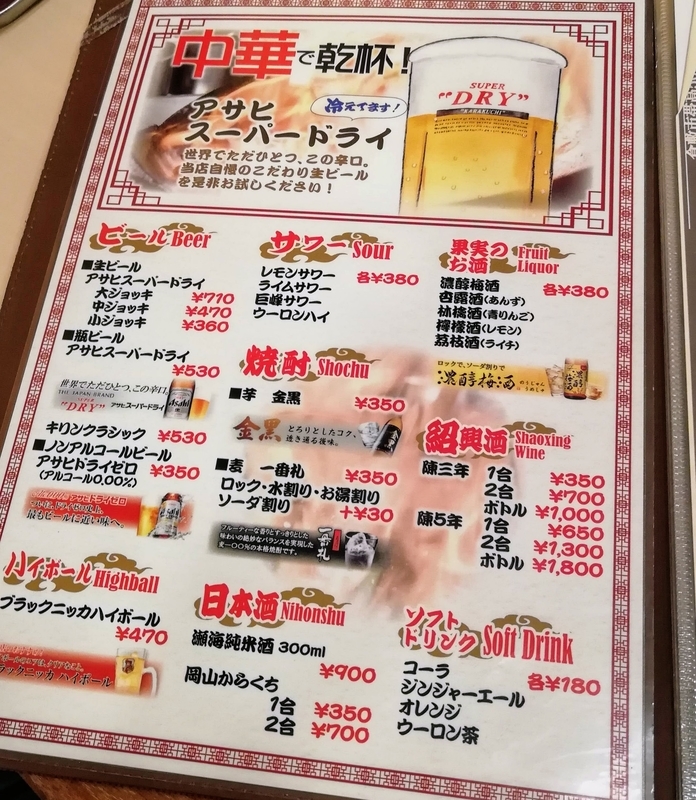 中華で乾杯!
アサヒ
スーパードライ
冷えてます!
世界でただひとつ、この辛口。
当店自慢のこだわり生ビール
を是非お試しください!
SUPER
"DRY"
"KARAKUCHI"
ビール Beer
■生ビール
アサヒスーパードライ
大ジョッキ ¥710
中ジョッキ ¥470
小ジョッキ ¥360
■瓶ビール
アサヒスーパードライ
¥530
世界でただひとつ、この辛口。
THE JAPAN BRAND
SUPER
"DRY" アサヒスーパードライ
Asahi
キリンクラシック ¥530
■ノンアルコールビール
アサヒドライゼロ ¥350
(アルコール0.00%)
アサヒドライゼロ
最もビールに近い味へ。
ハイボール Highball
ブラックニッカハイボール
¥470
ラックニッカ ハイボール
サワー Sour
レモンサワー 各¥380
ライムサワー
巨峰サワー
ウーロンハイ
焼酎 Shochu
■芋 金黒 ¥350
金黒 とろりとしたコク、
近き通る後味。
■麦 一番札 ¥350
ロック・水割り・お湯割り
ソーダ割り +¥30
フルーティーな香りとすっきりとした
味わいの絶妙なバランスを実現した
麦一〇〇%の本格焼酎です。
一番札
日本酒 Nihonshu
瀬海純米酒 300ml
¥900
岡山からくち
1合 ¥350
2合 ¥700
果実の
お酒 Fruit
Liquor
濃醇梅酒 各¥380
杏露酒(あんず)
林檎酒(青りんご)
檸檬酒(レモン)
茘枝酒(ライチ)
ロックで、ソーダ割りで
濃醇梅酒 のうじゅん
うめしゅ
紹興酒 Shaoxing
Wine
陳三年 1合 ¥350
2合 ¥700
ボトル ¥1,000
陳5年 1合 ¥650
2合 ¥1,300
ボトル ¥1,800
ソフト
ドリンク Soft Drink
コーラ 各¥180
ジンジャーエール
オレンジ
ウーロン茶